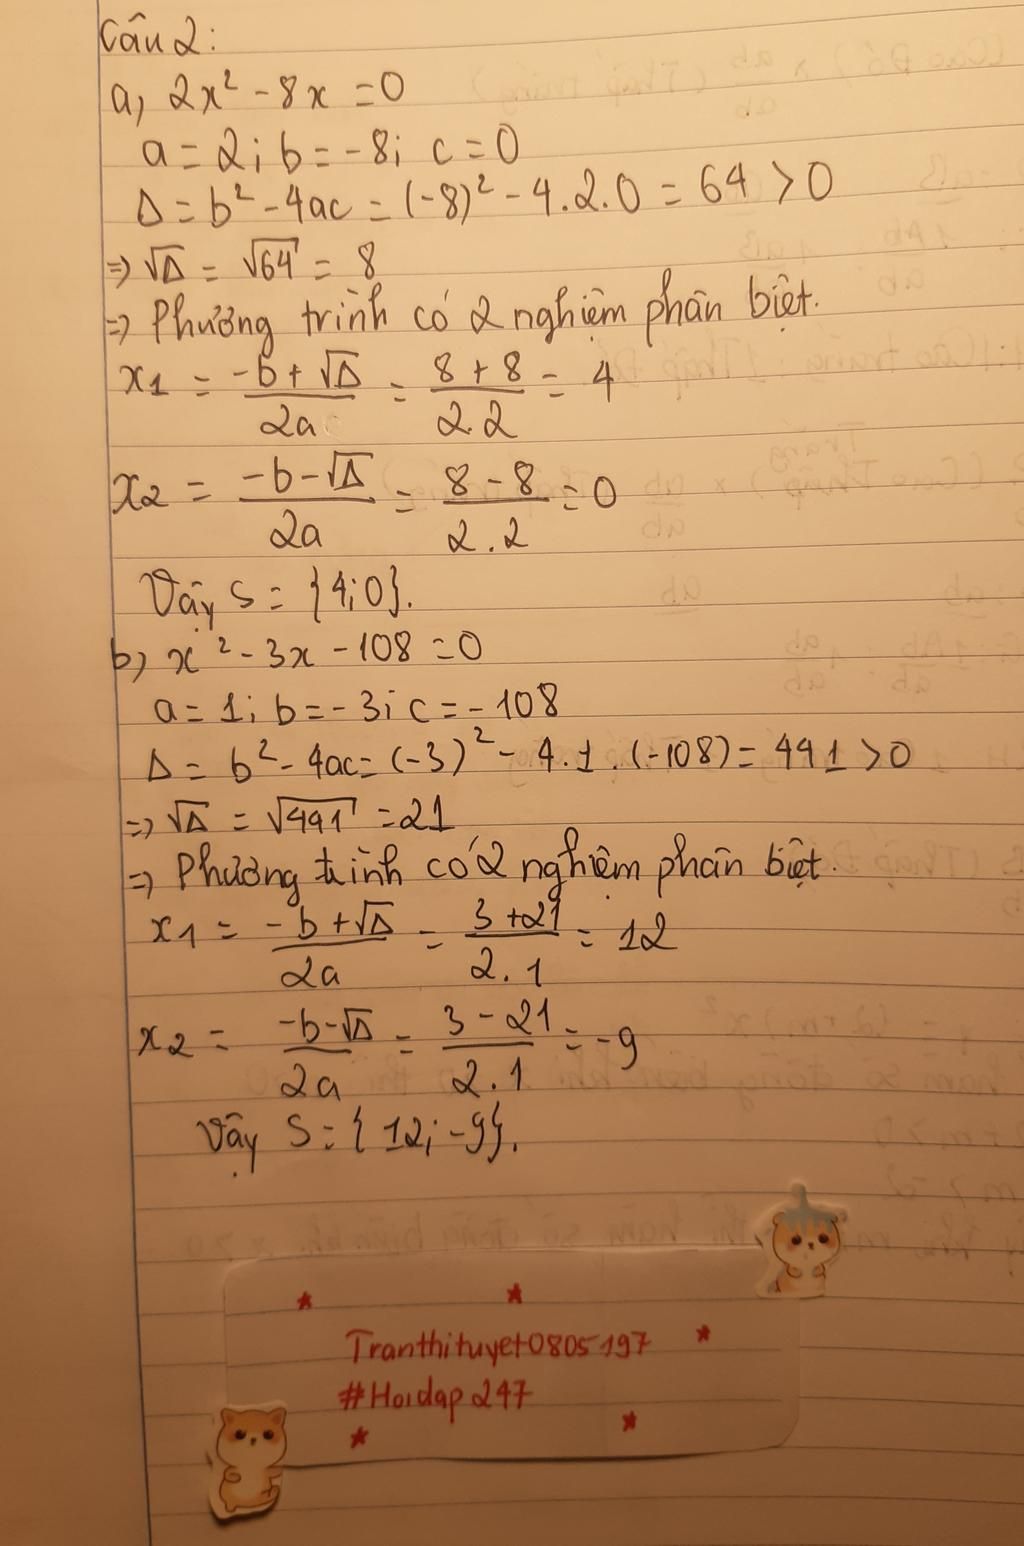 Câu 2:
a, 2x² - 8x = 0
a = 2; b = -8; c = 0
Δ = b² - 4ac = (-8)² - 4.2.0 = 64 > 0
=> √Δ = √64 = 8
=> Phương trình có 2 nghiệm phân biệt.
x1 = (-b + √Δ)/2a = (8 + 8)/2.2 = 4
x2 = (-b - √Δ)/2a = (8 - 8)/2.2 = 0
Vậy S = {4; 0}.
b, x² - 3x - 108 = 0
a = 1; b = -3; c = -108
Δ = b² - 4ac = (-3)² - 4.1.(-108) = 441 > 0
=> √Δ = √441 = 21
=> Phương trình có 2 nghiệm phân biệt.
x1 = (-b + √Δ)/2a = (3 + 21)/2.1 = 12
x2 = (-b - √Δ)/2a = (3 - 21)/2.1 = -9
Vậy S = {12; -9}.
Tranthituyet0805197
#Hoidap247